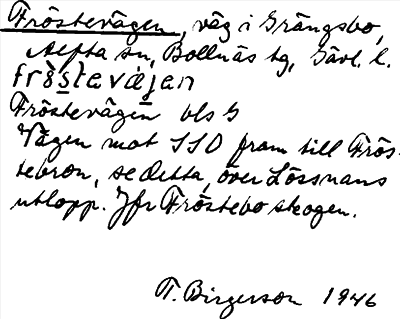 Fröstevägen, väg i Grängsbo,
Alfta sn, Bollnäs tg, Gävl. l.
frö̀stevä̀jen
Fröstevägen bls G
Vägen mot SSO fram till Frös-
tebron, se detta, över Lössnans
utlopp. Jfr Fröstebo skogen.
T. Birgerson 1946